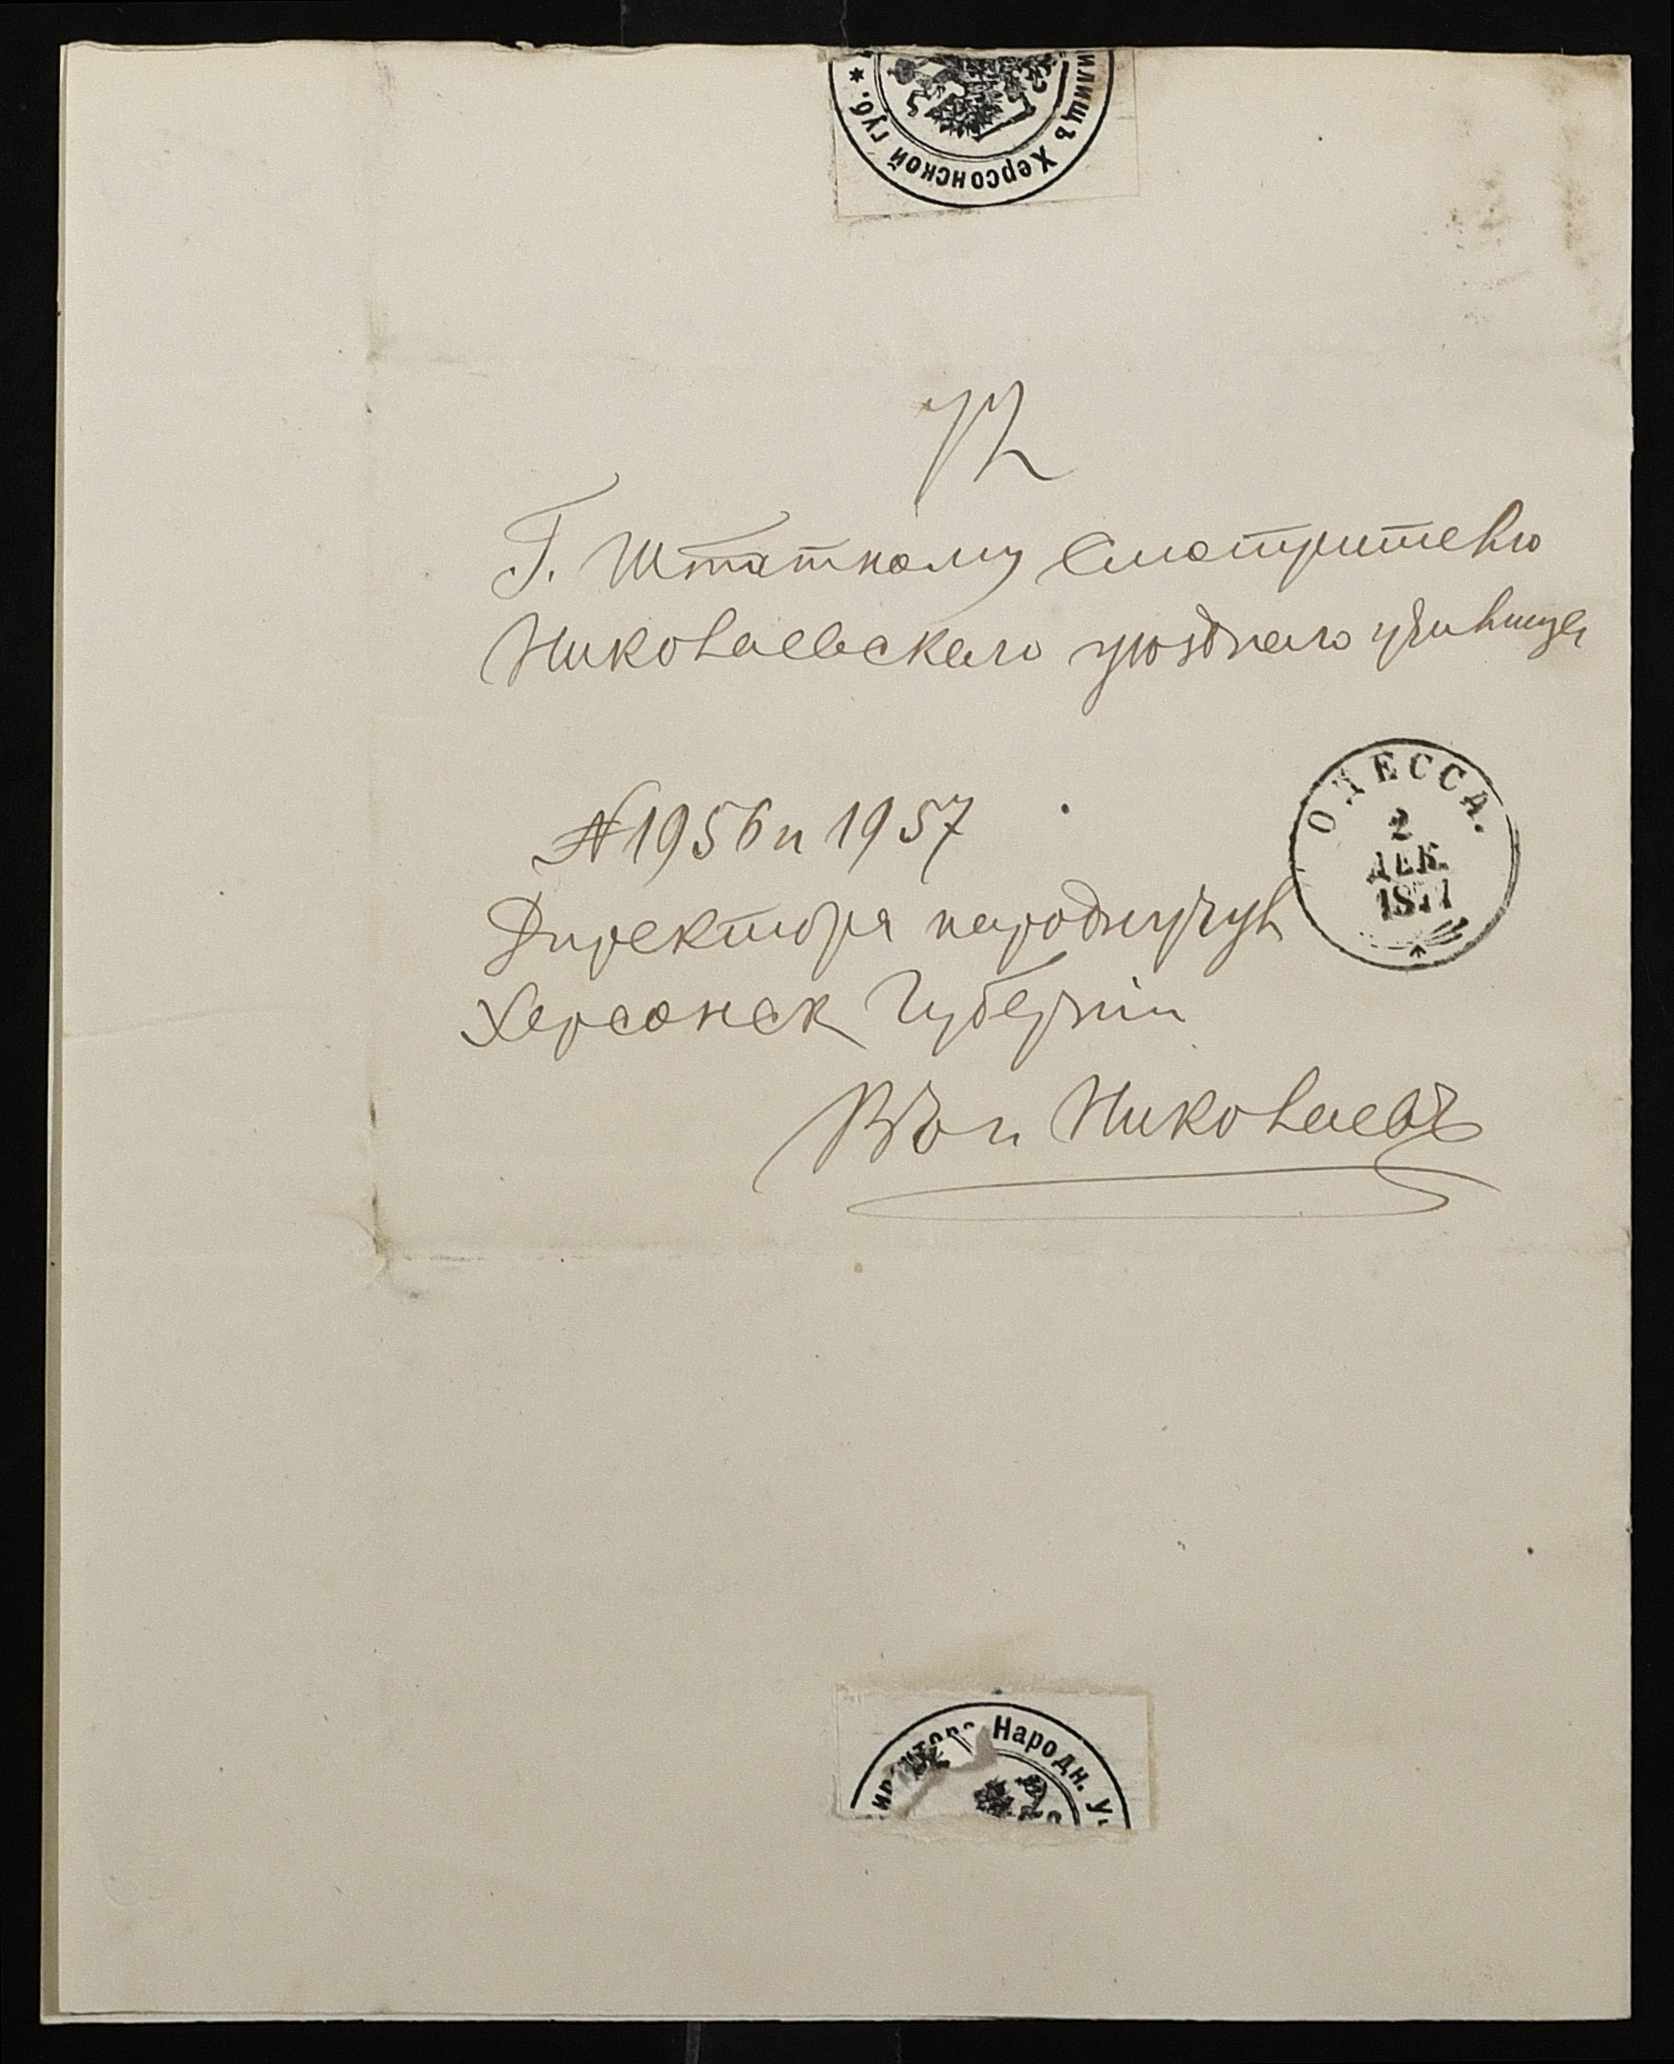 илищъ Херсонской губ. *
Г. Штатному Смотрителю
Николаевскаго уѣзднаго училища
№ 1956 и 1957
Директора народн уч
Херсонск Губерніи
Въ г. Николаевъ
ОДЕССА.
2
ДЕК.
1871
иректора Народн. Уч